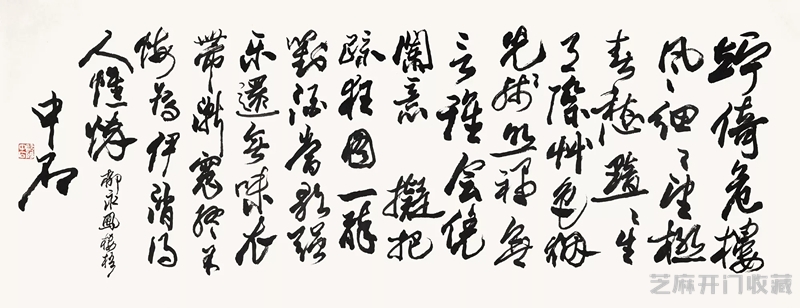 竚倚危樓
風細〻望極
春愁黯〻生
天際艸色烟
光殘照裡無
言誰會凭
闌意 擬把
疏狂圖一醉
對酒當歌强
樂還無味衣
帶漸寬終不
悔爲伊消得
人憔悴 柳永鳳棲梧
中石
芝麻开门收藏